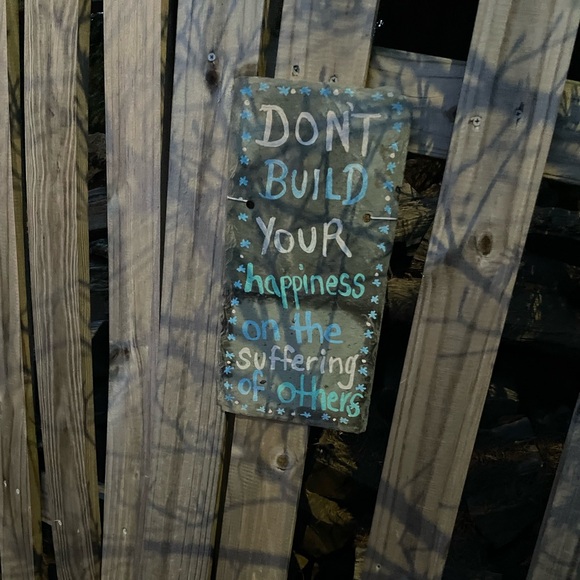 DON'T
BUILD
YOUR
happiness
on the
suffering
of others